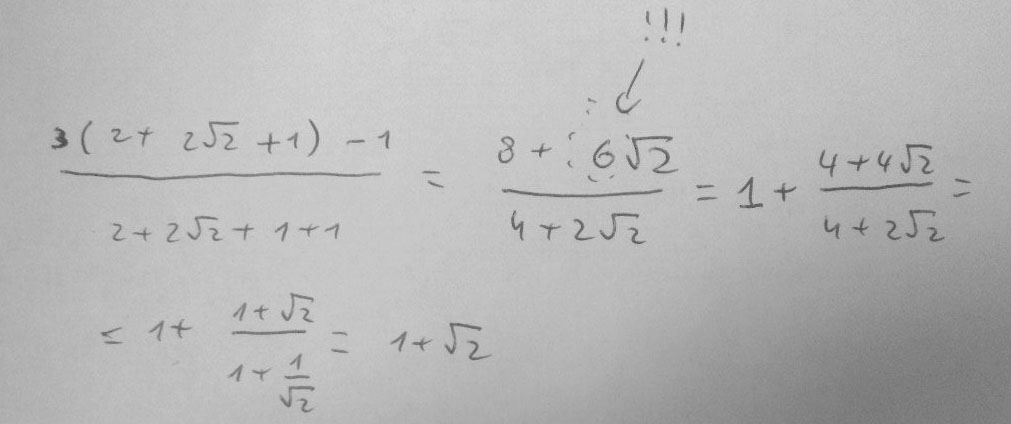 !!!
3(2+2√2+1)-1 / 2+2√2+1+1 = 8+6√2 / 4+2√2 = 1+ 4+4√2 / 4+2√2 =
≤ 1+ 1+√2 / 1+ 1/√2 = 1+√2